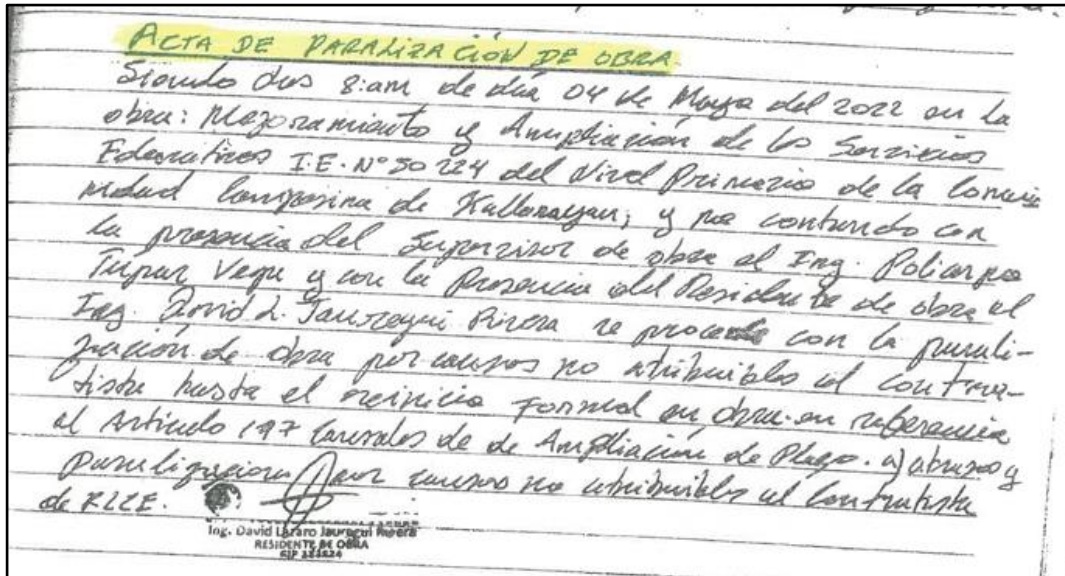 ACTA DE PARALIZACIÓN DE OBRA
Siendo las 8:am de día 04 de Mayo del 2022 en la
obra: Mejoramiento y Ampliación de los Servicios
Educativos I.E. N° 30 224 del Nivel Primario de la Comu
nidad Campesina de ; y no contando con
la presencia del Supervisor de obra el Ing. Policarpo
Vega y con la Presencia del Residente de obra el
Ing. David L. Jauregui Rivera se procede con la parali-
zación de obra por causas no atribuibles al contra-
tista hasta el reinicio Formal en obra. en referencia
al Artículo 197 Causales de de Ampliación de Plazo. a) atrasos y
paralizaciones por causas no atribuibles al Contratista
de RLCE.
Ing. David Lázaro Jauregui Rivera
RESIDENTE DE OBRA
CIP